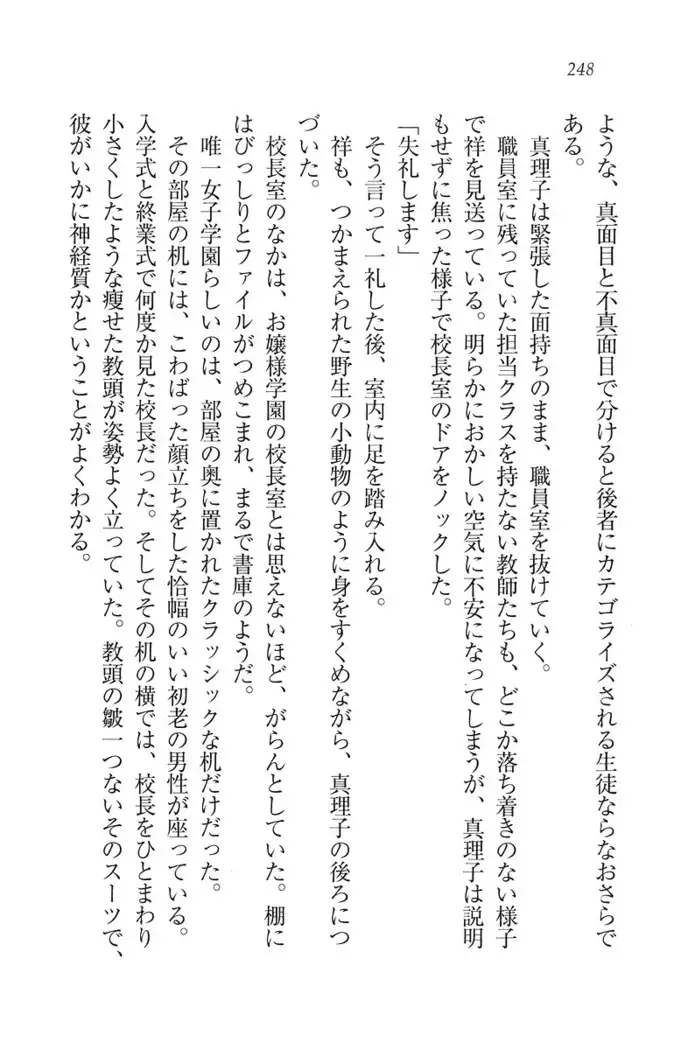 248
ような、真面目と不真面目で分けると後者にカテゴライズされる生徒ならなおさらで
ある。
真理子は緊張した面持ちのまま、職員室を抜けていく。
職員室に残っていた担当クラスを持たない教師たちも、どこか落ち着きのない様子
で祥を見送っている。明らかにおかしい空気に不安になってしまうが、真理子は説明
もせずに焦った様子で校長室のドアをノックした。
「失礼します」
そう言って一礼した後、室内に足を踏み入れる。
祥も、つかまえられた野生の小動物のように身をすくめながら、真理子の後ろにつ
づいた。
校長室のなかは、お嬢様学園の校長室とは思えないほど、がらんとしていた。棚に
はびっしりとファイルがつめこまれ、まるで書庫のようだ。
唯一女子学園らしいのは、部屋の奥に置かれたクラッシックな机だけだった。
その部屋の机には、こわばった顔立ちをした恰幅のいい初老の男性が座っている。
入学式と終業式で何度か見た校長だった。そしてその机の横では、校長をひとまわり
小さくしたような痩せた教頭が姿勢よく立っていた。教頭の皺一つないそのスーツで、
彼がいかに神経質かということがよくわかる。